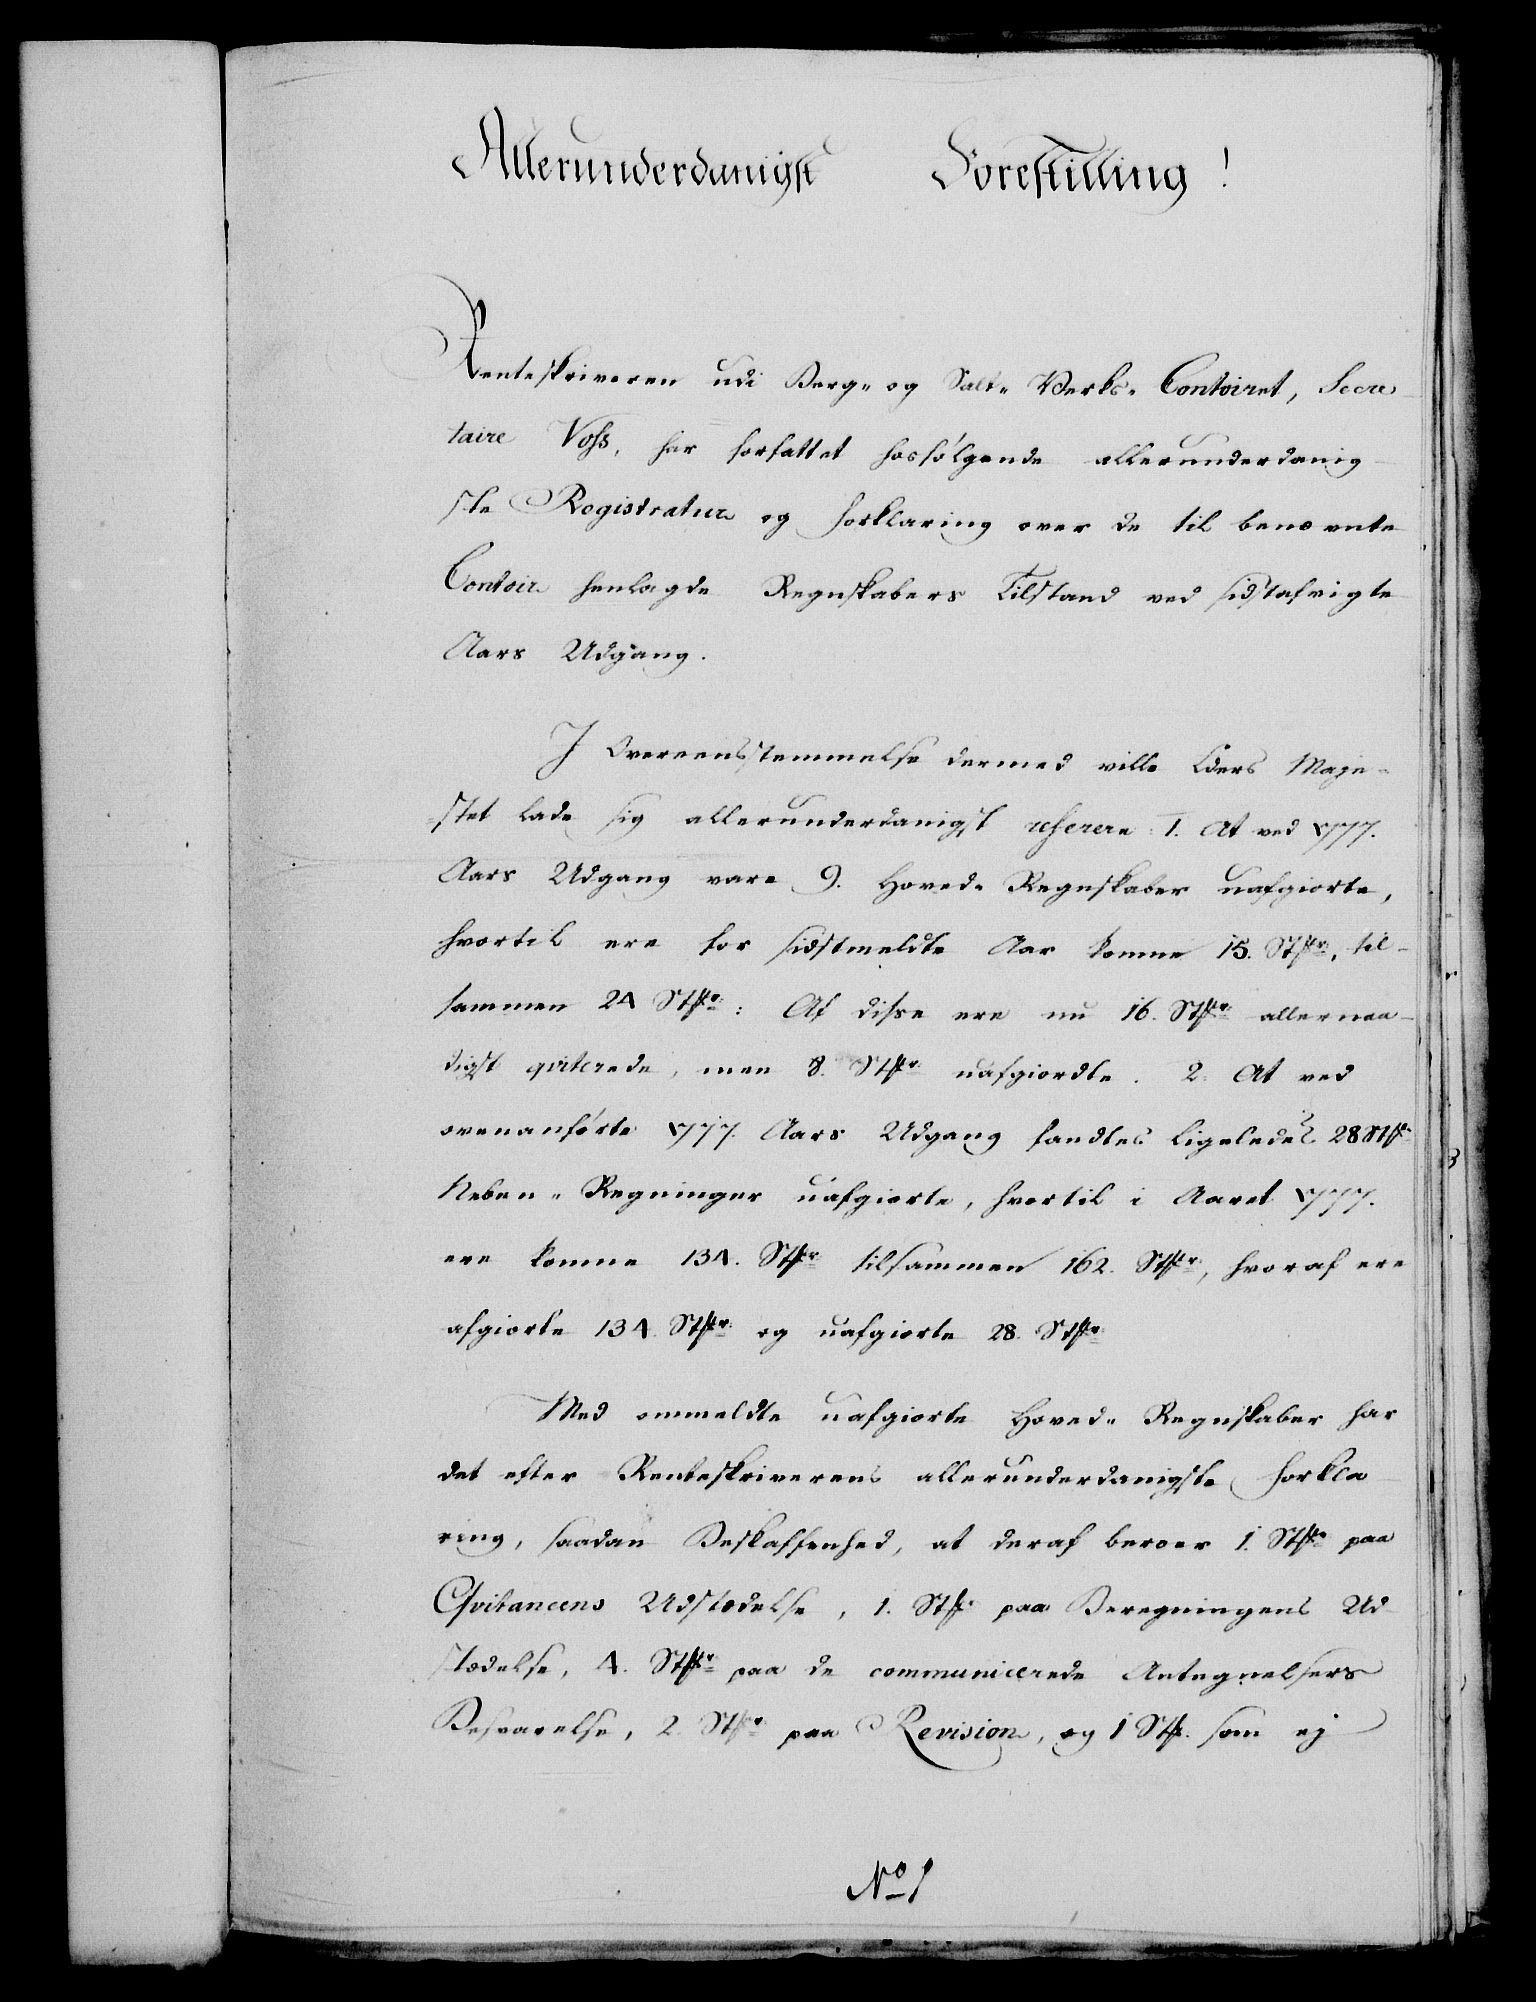 Allerunderdanigst Forestilling!
Renteskriveren udi Berg- og Salt- Verks- Contoiret, Secre
taire Voss, har forfattet hosfølgende allerunderdanig
ste Registratur og Forklaring over de til benævnte
Contoir henlagde Regnskabers Tilstand ved sidstafvigte
Aars Udgang.
I Overeensstemmelse dermed ville Eders Maje-
stet lade sig allerunderdanigst referere 1. At ved 1777.
Aars Udgang vare 9. Hoved- Regnskaber uafgiorte,
hvortil ere for sidstmeldte Aar komne 15. Stkr, til-
sammen 24 Stkr: Af disse ere nu 16. Stkr allernaa-
digst qviterede, men 8. Stkr uafgiordte. 2. At ved
ovenanførte 1777. Aars Udgang fandtes ligeledes 28 Stkr
Neben- Regninger uafgiorte, hvortil i Aaret 1777.
ere komne 134. Stkr tilsammen 162. Stkr, hvoraf ere
afgiorte 134. Stkr og uafgiorte 28. Stkr
Med ommeldte uafgiorte Hoved- Regnskaber har
det efter Renteskriverens allerunderdanigste Forkla
ring, saadan Beskaffenhed, at deraf beroer 1. Stkr paa
Qvitancens Udstædelse, 1. Stk. paa Beregningens Ud
stædelse, 4. Stkr paa de communicerede Antegnelsers
Besvarelse, 2. Stkr paa Revision, og 1 Stk. som ej
No 1